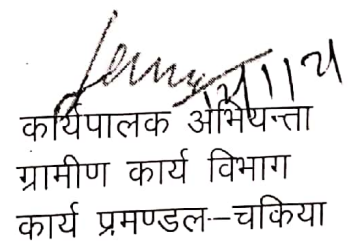 कार्यपालक अभियन्ता
ग्रामीण कार्य विभाग
कार्य प्रमण्डल--चकिया